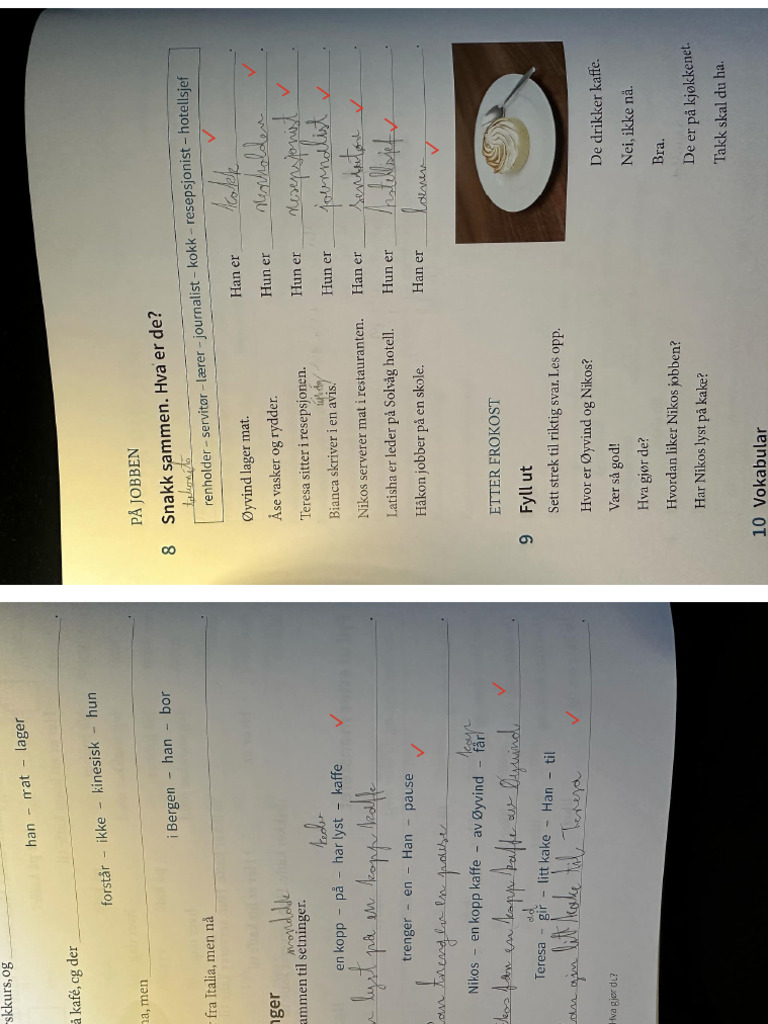 PÅ JOBBEN
8 Snakk sammen. Hva er de?
renholder – servitør – lærer – journalist – kokk – resepsjonist – hotellsjef
Øyvind lager mat. Han er kokk.
Åse vasker og rydder. Hun er renholder.
Teresa sitter i resepsjonen. Hun er resepsjonist.
Bianca skriver i en avis. Hun er journalist.
Nikos serverer mat i restauranten. Han er
Latisha er leder på Solvåg hotell. Hun er hotellsjef.
Håkon jobber på en skole. Han er
ETTER FROKOST
9 Fyll ut
Sett strek til riktig svar. Les opp.
Hvor er Øyvind og Nikos? De drikker kaffe.
Vær så god! Nei, ikke nå.
Hva gjør de? Bra.
Hvordan liker Nikos jobben? De er på kjøkkenet.
Har Nikos lyst på kake? Takk skal du ha.
10 Vokabular
skkurs, og
han – mat – lager
å kafé, og der
forstår – ikke – kinesisk – hun
na, men
i Bergen – han – bor
fra Italia, men nå
nger
ammen til setninger.
en kopp – på – har lyst – kaffe
lyst på en kopp kaffe
trenger – en – Han – pause
an trenger en pause
Nikos – en kopp kaffe – av Øyvind – får
kos får en kopp kaffe av Øyvind
Teresa – gir – litt kake – Han – til
an gir litt kake til Teresa
Hva gjør de?